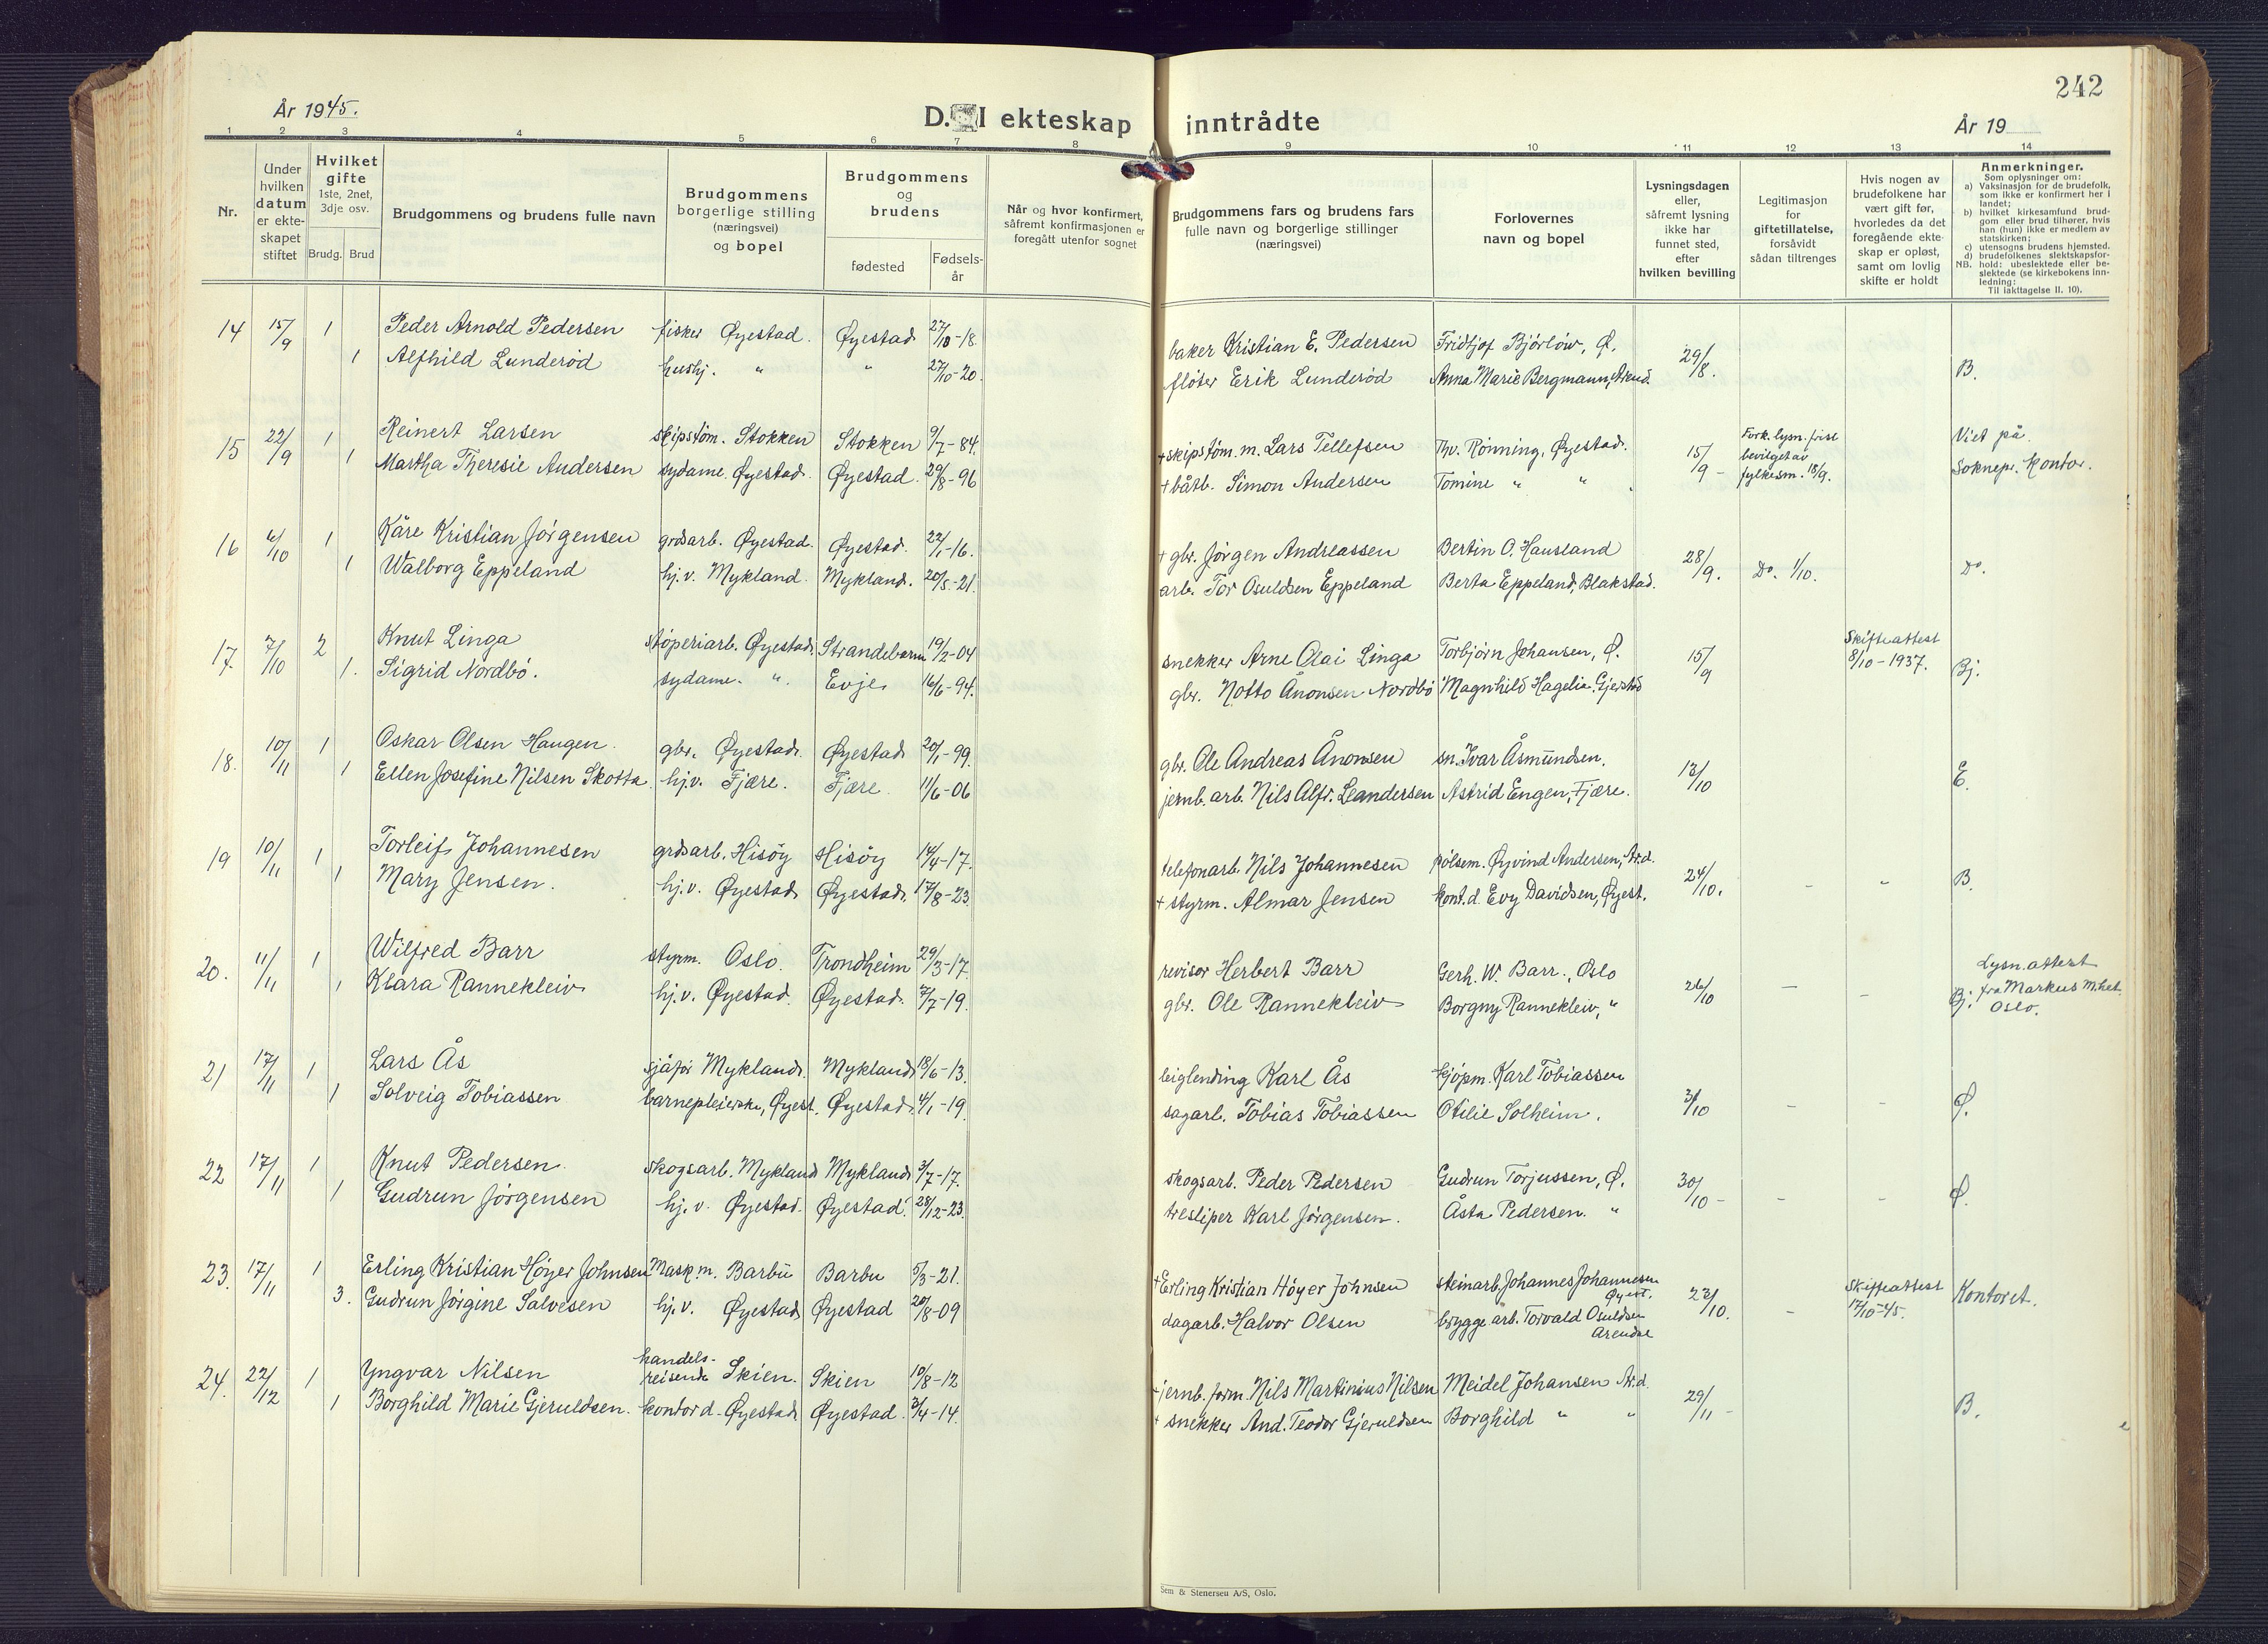 242
År 1945.
D. I ekteskap inntrådte
År 19
1 2 3 4 5 6 7 8 9 10 11 12 13 14
Nr.
Under hvilken datum er ekteskapet stiftet
Hvilket gifte 1ste, 2net, 3dje osv.
Brudg. Brud
Brudgommens og brudens fulle navn
Brudgommens borgerlige stilling (næringsvei) og bopel
Brudgommens og brudens
fødested
Fødselsår
Når og hvor konfirmert, såfremt konfirmasjonen er foregått utenfor sognet
Brudgommens fars og brudens fars fulle navn og borgerlige stillinger (næringsvei)
Forlovernes navn og bopel
Lysningsdagen eller, såfremt lysning ikke har funnet sted, efter hvilken bevilling
Legitimasjon for giftetillatelse, forsåvidt sådan tiltrenges
Hvis nogen av brudefolkene har vært gift før, hvorledes da det foregående ekteskap er opløst, samt om lovlig skifte er holdt
Anmerkninger.
Som oplysninger om:
a) Vaksinasjon for de brudefolk, som ikke er konfirmert her i landet;
b) hvilket kirkesamfund brudgom eller brud tilhører, hvis han (hun) ikke er medlem av statskirken;
c) utensogns brudens hjemsted.
d) brudefolkenes slektskapsforhold: ubeslektede eller beslektede (se kirkebokens innledning:
NB.
Til iakttagelse II. 10).
14 15/9 1 Peder Arnold Pedersen fisker Øyestad. Øyestad 27/10-18. baker Kristian E. Pedersen Fridtjof Bjórlów, Ø. 29/8. B.
1 Alfhild Lunderød hushj. " " 27/10-20. fløter Erik Lunderød Anna Marie Bergmann, Arend.
15 22/9 1 Reinert Larsen skipstøm. Stokken Stokken 9/7-84. + skipstøm. m. Lars Tellefsen Thv. Rønning, Øyestad. 15/9 - Fork. lysn. frist bevilget av fylkesm. 18/9. Viet på Soknepr. kontor.
1 Martha Theresie Andersen sydame. Øyestad. Øyestad. 29/8-96 + båtb. Simon Andersen Tomine " "
16 6/10 1 Kåre Kristian Jørgensen grdsarb. Øyestad. Øyestad. 22/1-16. + gbr. Jørgen Andreassen Bertin O. Hausland 28/9. Do. 1/10. Do.
1 Walborg Eppeland hj.v. Mykland. Mykland. 20/8-21. arb. Tor Osuldsen Eppeland Berta Eppeland, Blakstad.
17. 7/10 2 Knut Linga støperiarb. Øyestad. Strandebarm 19/2-04 snekker Arne Olai Linga Torbjørn Johansen, Ø. 15/9 Skifteattest 8/10-1937. Bj.
1. Sigrid Nordbø. sydame. " Evje. 16/6-94. gbr. Notto Ånonsen Nordbø Magnhild Hagelia, Gjerstad
18. 10/11 1 Oskar Olsen Haugen. gbr. Øyestad. Øyestad 20/1-99. gbr. Ole Andreas Ånonsen sn. Ivar Åsmundsen. 13/10 E.
1 Ellen Josefine Nilsen Skotta. hj.v. Fjære. Fjære. 11/6-06 jernb. arb. Nils Alfr. Leandersen Astrid Engen, Fjære.
19 10/11 1 Torleif Johannesen grdsarb. Hisøy Hisøy 14/4-17. telefonarb. Nils Johannesen pølsem. Øyvind Andersen, Ar.d. 24/10. - " B.
1 Mary Jensen. hj.v. Øyestad Øyestad. 17/8-23. + styrm. Almar Jensen kont.d. Evy Davidsen, Øyest.
20. 11/11 1 Wilfred Barr styrm. Oslo. Trondheim 29/3-17. revisor Herbert Barr Gerh. W. Barr., Oslo 26/10 - - Bj. Lysn. attest fra Markus m.het. Oslo.
1 Klara Rannekleiv hj.v. Øyestad. Øyestad. 7/7-19. gbr. Ole Rannekleiv Borgny Rannekleiv, "
21 17/11 1 Lars Ås sjåfør Mykland. Mykland 18/6-13. leiglending Karl Ås kjøpm. Karl Tobiassen 3/10 - - Ø.
1 Solveig Tobiassen barnepleierske, Øyest. Øyestad. 4/1-19. sagarb. Tobias Tobiassen Otilie Solheim.
22 17/11 1 Knut Pedersen. skogsarb. Mykland Mykland 3/7-17. skogsarb. Peder Pedersen Gudrun Torjussen, Ø. 30/10 - - - Ø.
1 Gudrun Jørgensen hj.v. Øyestad. Øyestad. 28/12-23. tresliper Karl Jørgensen. Åsta Pedersen. "
23. 17/11 1 Erling Kristian Høyer Johnsen Mask.m. Barbu Barbu 5/3-21. + Erling Kristian Høyer Johnsen steinarb. Johannes Johannesen Øyest. 23/10. - Skifteattest 17/10-45. Kontoret.
3. Gudrun Jørgine Salvesen hj.v. Øyestad Øyestad 20/8-09 dagarb. Halvor Olsen brygge arb. Torvald Osuldsen Arendal
24. 22/12 1 Yngvar Nilsen handelsreisende Skien. Skien 10/8-12 + jernb. form. Nils Martinius Nilsen Meidel Johansen Ar.d. 29/11 - B.
1 Borghild Marie Gjeruldsen. kontord. Øyestad Øyestad. 2/4-14. + snekker And. Teodor Gjeruldsen Borghild " "
Sem & Stenersen A/S, Oslo.